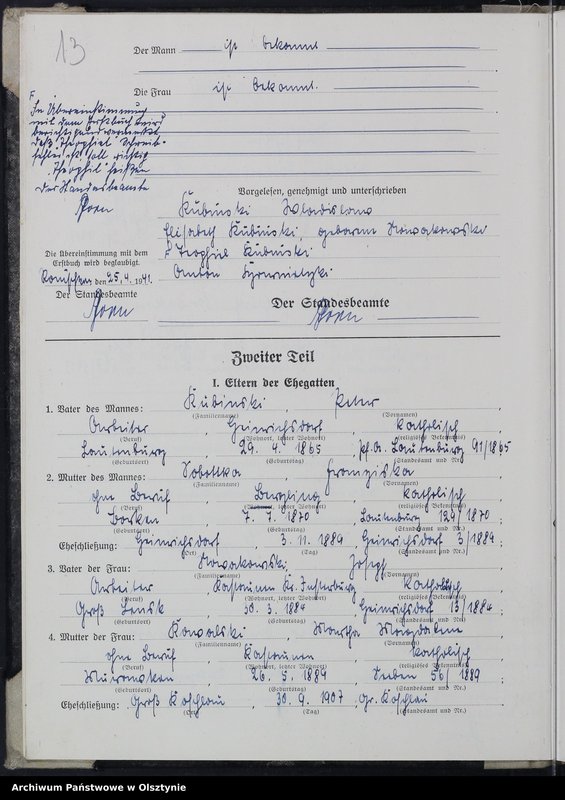 13
Der Mann ist bekannt
Die Frau ist bekannt.
F
In Übereinstimmung
mit dem Erstbuch wird
berichtigend vermerkt
daß "Theophiel" Schreib-
fehler ist soll richtig
"Theophil" heißen
Der Standesbeamte
Vorgelesen, genehmigt und unterschrieben
Kubinski Wladislaw
Elisabeth Kubinski, geborene Nowakowski
F Teophiel Kubinski
Anton
Die Übereinstimmung mit dem
Erstbuch wird beglaubigt.
den 25. 4. 1941.
Der Standesbeamte
Der Standesbeamte
Zweiter Teil
I. Eltern der Ehegatten
1. Vater des Mannes: Kubinski, Peter,
(Familienname) (Vornamen)
Arbeiter, Heinrichsdorf, katholisch
(Beruf) (Wohnort, letzter Wohnort) (religiöses Bekenntnis)
Lautenburg, 29. 4. 1865, Lautenburg 91/1865
(Geburtsort) (Geburtstag) (Standesamt und Nr.)
2. Mutter des Mannes: Sobottka, Franziska
(Familienname) (Vornamen)
ohne Beruf, katholisch
(Beruf) (Wohnort, letzter Wohnort) (religiöses Bekenntnis)
Borken, 7. 7. 1870, Lautenburg 124/1870;
(Geburtsort) (Geburtstag) (Standesamt und Nr.)
Eheschließung: Heinrichsdorf, 3. 11. 1889, Heinrichsdorf 3/1889;
(Ort) (Tag) (Standesamt und Nr.)
3. Vater der Frau: Nowakowski, Joseph,
(Familienname) (Vornamen)
Arbeiter, Kr. Insterburg, katholisch
(Beruf) (Wohnort, letzter Wohnort) (religiöses Bekenntnis)
Groß Lensk, 30. 3. 1884, Heinrichsdorf 13/1884;
(Geburtsort) (Geburtstag) (Standesamt und Nr.)
4. Mutter der Frau: Kowalski, Martha Magdalena
(Familienname) (Vornamen)
ohne Beruf, katholisch
(Beruf) (Wohnort, letzter Wohnort) (religiöses Bekenntnis)
26. 5. 1889, Seeben 56/1889
(Geburtsort) (Geburtstag) (Standesamt und Nr.)
Eheschließung: Groß Koschlau, 30. 9. 1907, Gr. Koschlau
(Ort) (Tag) (Standesamt und Nr.)
Archiwum Państwowe w Olsztynie